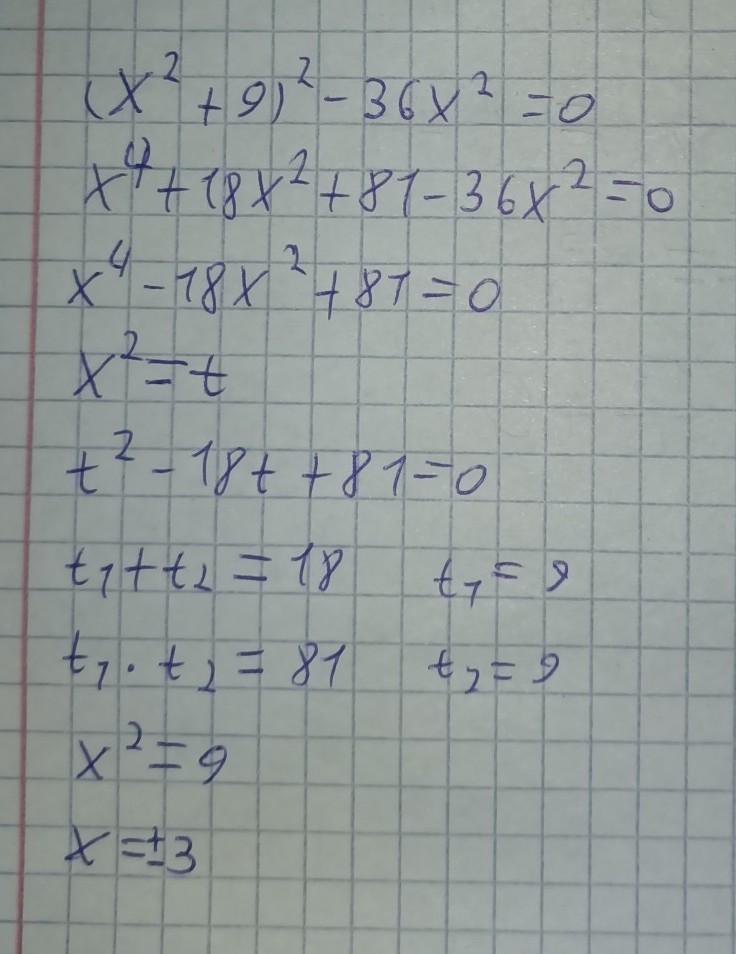 (x² + 9)² - 36x² = 0
x⁴ + 18x² + 81 - 36x² = 0
x⁴ - 18x² + 81 = 0
x² = t
t² - 18t + 81 = 0
t₁ + t₂ = 18 t₁ = 9
t₁ · t₂ = 81 t₂ = 9
x² = 9
x = ±3